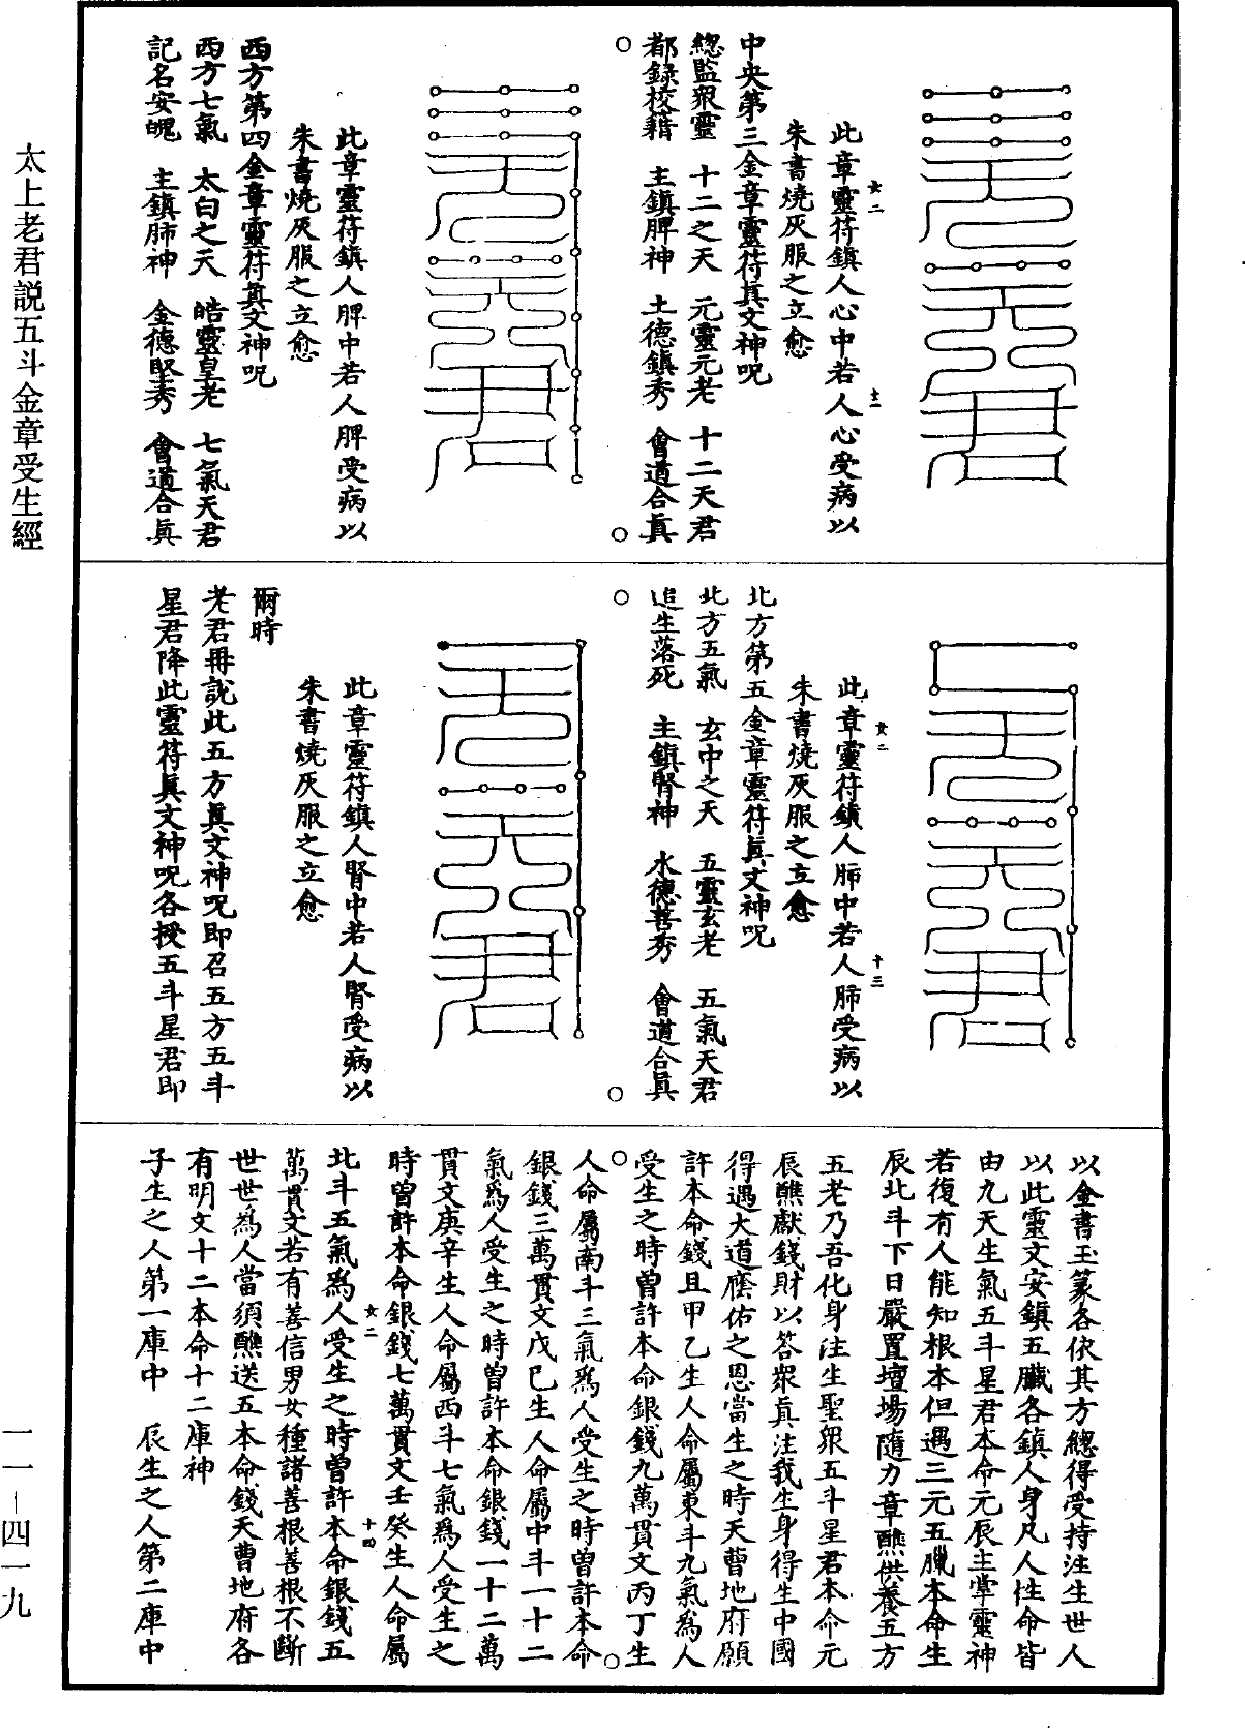 太上老君説五斗金章受生經
此章靈符鎮人心中若人心受病以
朱書燒灰服之立愈
中央第三金章靈符眞文神呪
總監衆靈　十二之天　元靈元老　十二天君
都錄校籍　主鎮脾神　土德鎮秀　會道合眞
此章靈符鎮人脾中若人脾受病以
朱書燒灰服之立愈
西方第四金章靈符眞文神呪
西方七氣　太白之天　皓靈皇老　七氣天君
記名安魄　主鎮肺神　金德堅秀　會道合眞
此章靈符鎮人肺中若人肺受病以
朱書燒灰服之立愈
北方第五金章靈符眞文神呪
北方五氣　玄中之天　五靈玄老　五氣天君
追生落死　主鎮腎神　水德善秀　會道合眞
此章靈符鎮人腎中若人腎受病以
朱書燒灰服之立愈
爾時
老君再說此五方眞文神呪即召五方五斗
星君降此靈符眞文神呪各授五斗星君即
以金書玉篆各依其方總得受持注生世人
以此靈文安鎮五臟各鎮人身凡人性命皆
由九天生氣五斗星君本命元辰主掌靈神
若復有人能知根本但遇三元五臘本命生
辰北斗下日嚴置壇場隨力章醮供養五方
五老乃吾化身注生聖衆五斗星君本命元
辰醮獻錢財以答衆眞注我生身得生中國
得遇大道䕃佑之恩當生之時天曹地府願
許本命錢且甲乙生人命屬東斗九氣為人
受生之時曾許本命銀錢九萬貫文丙丁生
人命屬南斗三氣為人受生之時曾許本命
銀錢三萬貫文戊巳生人命屬中斗一十二
氣為人受生之時曾許本命銀錢一十二萬
貫文庚辛生人命屬西斗七氣為人受生之
時曾許本命銀錢七萬貫文壬癸生人命屬
北斗五氣為人受生之時曾許本命銀錢五
萬貫文若有善信男女種諸善根善根不斷
世世為人當須醮送五本命錢天曹地府各
有明文十二本命十二庫神
子生之人第一庫中　辰生之人第二庫中
一一—四一九